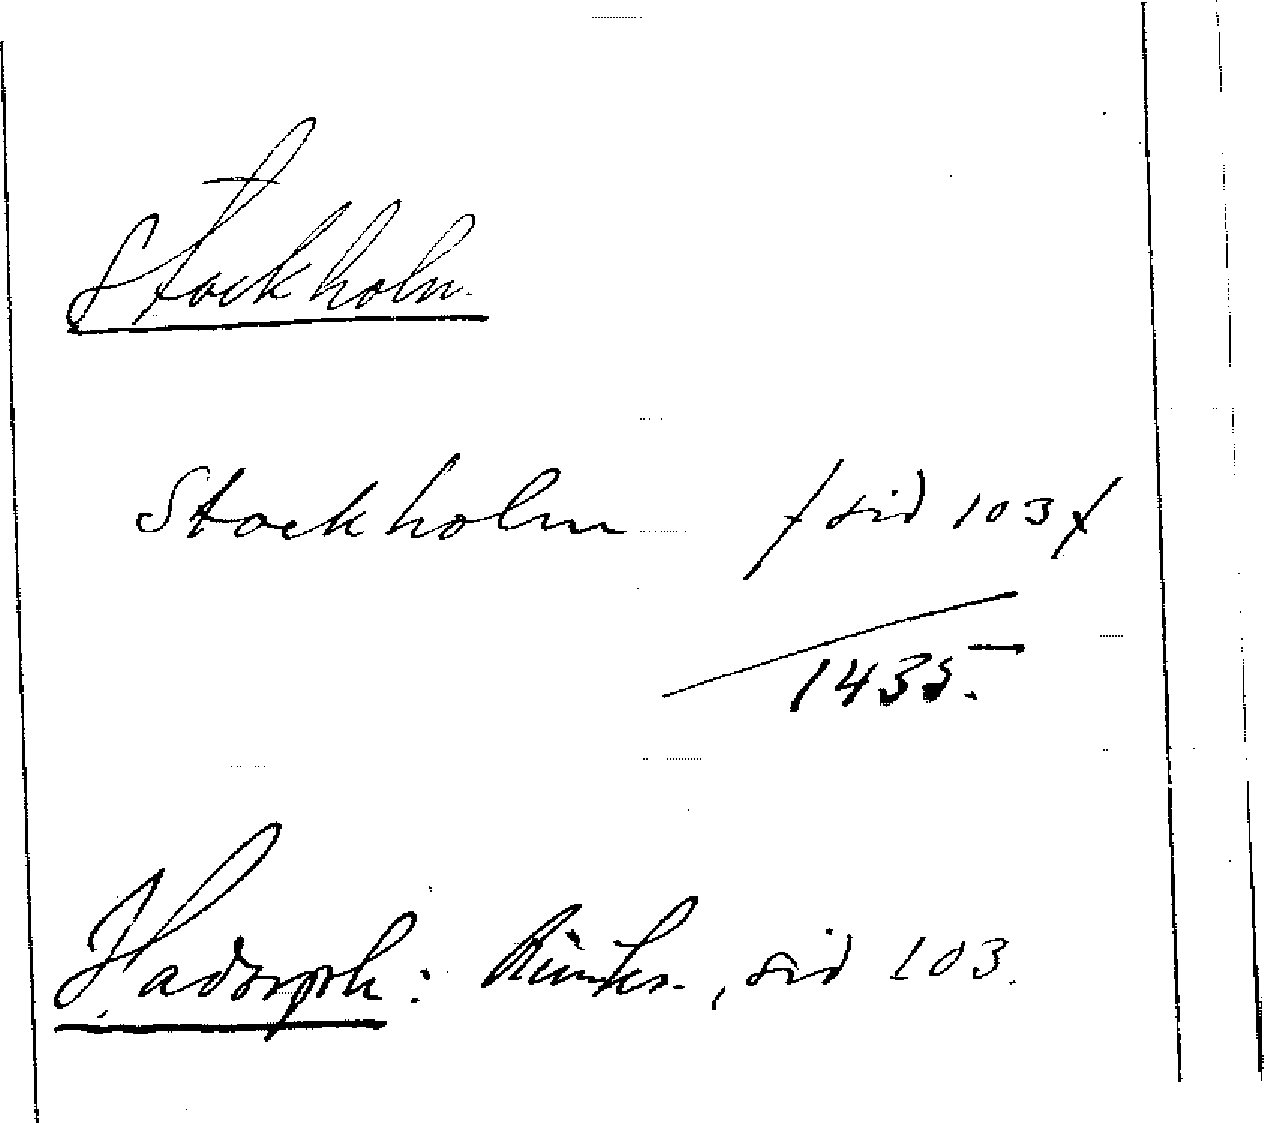 Stockholm.
Stockholm /sid 103/
1435.
Hadorph: Rimkr., sid 103.